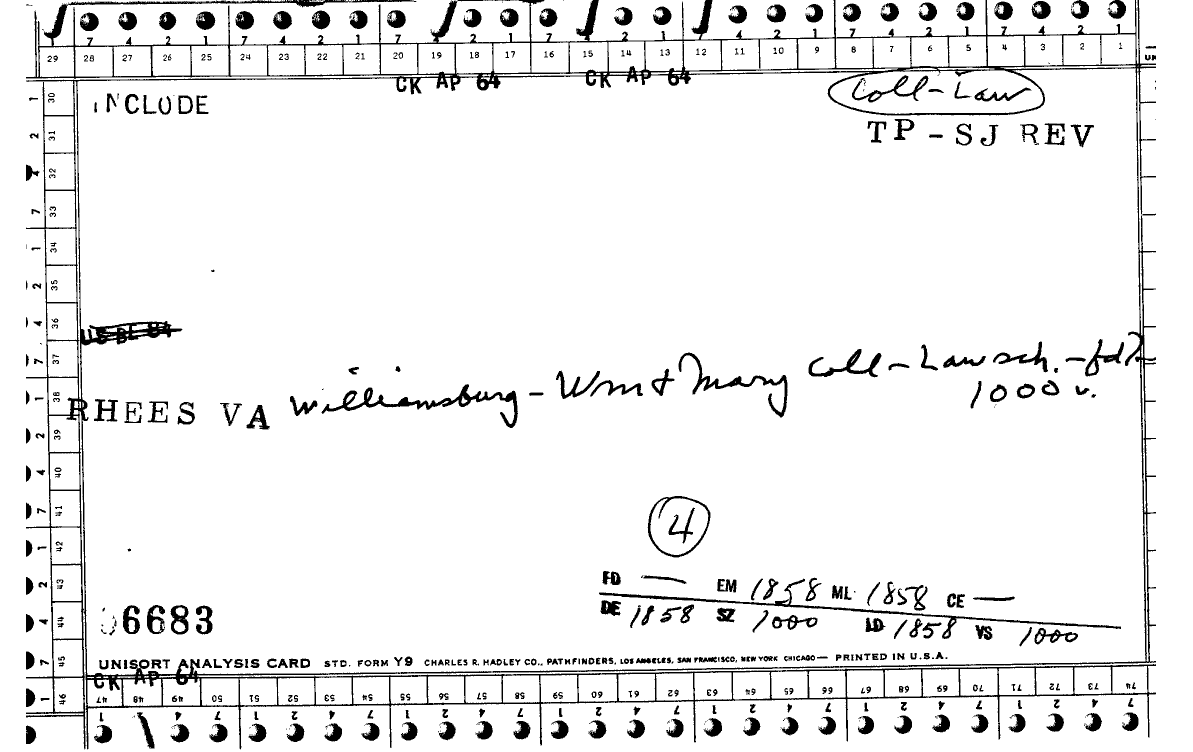 7 4 2 1 7 4 2 1 7 2 1 7 2 1 4 2 1 7 4 2 1 7 4 2 1
29 28 27 26 25 24 23 22 21 20 19 18 17 16 15 14 13 12 11 10 9 8 7 6 5 4 3 2 1
CK AP 64 CK AP 64
INCLUDE
Coll-Law
TP-SJ REV
1 30
2 31
4 32
7 33
1 34
2 35
4 36
7 37
1 38
2 39
4 40
7 41
1 42
2 43
4 44
7 45
1 46
RHEES VA Williamsburg - Wm & Mary Coll - Law sch. - fd?
1000 v.
4
FD — EM 1858 ML 1858 CE —
DE 1858 SZ 1000 LD 1858 VS 1000
6683
UNISORT ANALYSIS CARD STD. FORM Y9 CHARLES R. HADLEY CO., PATHFINDERS, LOS ANGELES, SAN FRANCISCO, NEW YORK CHICAGO — PRINTED IN U.S.A.
CK AP 64
47 48 49 50 51 52 53 54 55 56 57 58 59 60 61 62 63 64 65 66 67 68 69 70 71 72 73 74
1 4 7 1 2 4 7 1 2 4 7 1 2 4 7 1 2 4 7 1 2 4 7 1 2 4 7